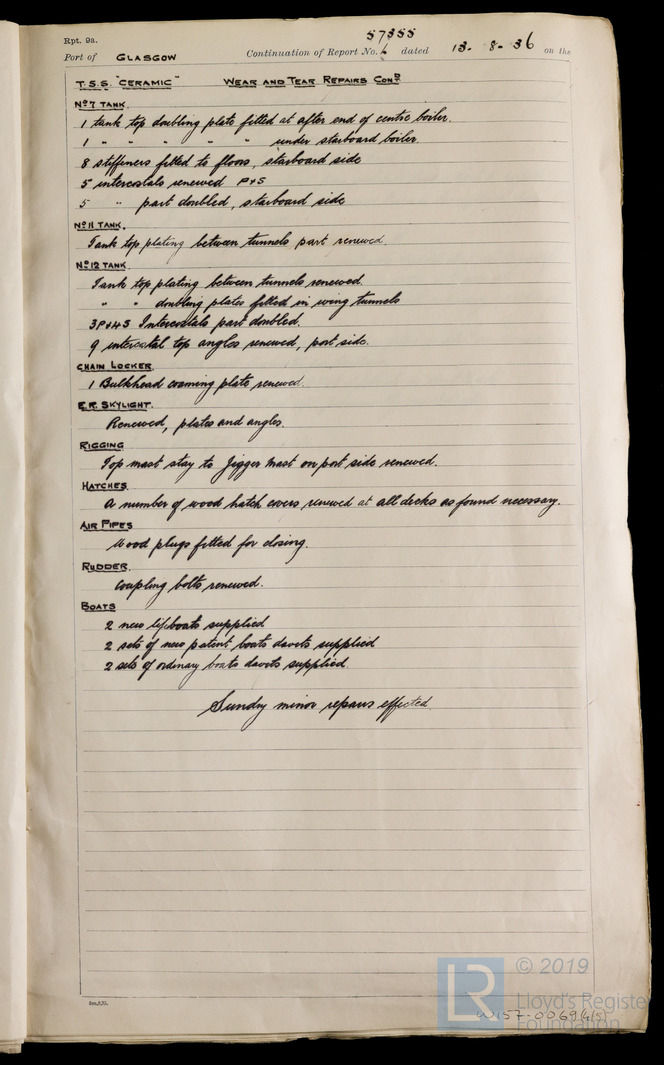 Rpt. 9a.
57355
Port of GLASGOW Continuation of Report No. dated 13. 8. 36 on the
T.S.S. "CERAMIC" WEAR AND TEAR REPAIRS COND.
No 7 TANK.
1 tank top doubling plate fitted at after end of centre boiler.
1 " " " " " under starboard boiler.
8 stiffeners fitted to floors, starboard side
5 intercostals renewed P+S
5 " part doubled, starboard side
No 11 TANK.
Tank top plating between tunnels part renewed.
No 12 TANK.
Tank top plating between tunnels renewed.
" " doubling plates fitted in wing tunnels
3P+4S Intercostals part doubled.
9 intercostal top angles renewed, port side.
CHAIN LOCKER.
1 Bulkhead coaming plate renewed.
E.R. SKYLIGHT.
Renewed, plates and angles.
RIGGING
Top mast stay to Jigger Mast on port side renewed.
HATCHES
A number of wood hatch covers renewed at all decks as found necessary.
AIR PIPES
Wood plugs fitted for closing.
RUDDER.
Coupling bolts renewed.
BOATS
2 new lifeboats supplied
2 sets of new patent boats davits supplied
2 sets of ordinary boats davits supplied
Sundry minor repairs effected.
LR
© 2019
Lloyd's Register
Foundation
W157-0069(4/5)